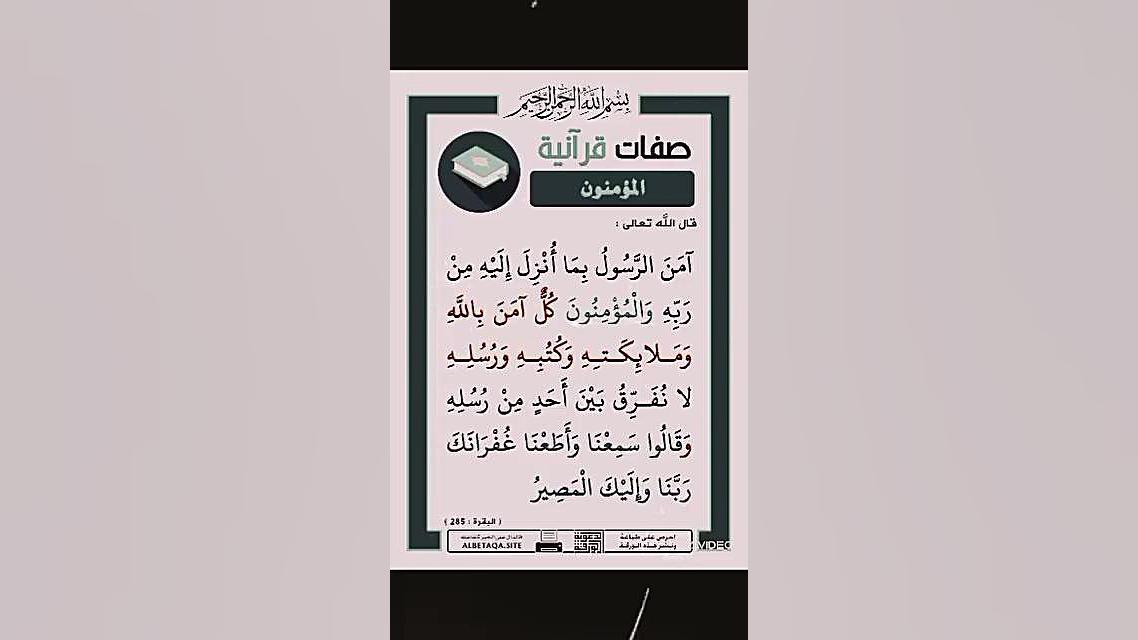 بسم الله الرحمن الرحيم
صفات قرآنية
المؤمنون
قال الله تعالى :
آمَنَ الرَّسُولُ بِمَا أُنْزِلَ إِلَيْهِ مِنْ
رَبِّهِ وَالْمُؤْمِنُونَ كُلٌّ آمَنَ بِاللَّهِ
وَمَـلائِكَـتِـهِ وَكُتُبِـهِ وَرُسُلِـهِ
لا نُفَـرِّقُ بَيْنَ أَحَدٍ مِنْ رُسُلِهِ
وَقَالُوا سَمِعْنَا وَأَطَعْنَا غُفْرَانَكَ
رَبَّنَا وَإِلَيْكَ الْمَصِيرُ
( البقرة : 285 )
احرص على طباعة
ونشر هذه الورقة
ALBETAQA.SITE
VIDEO